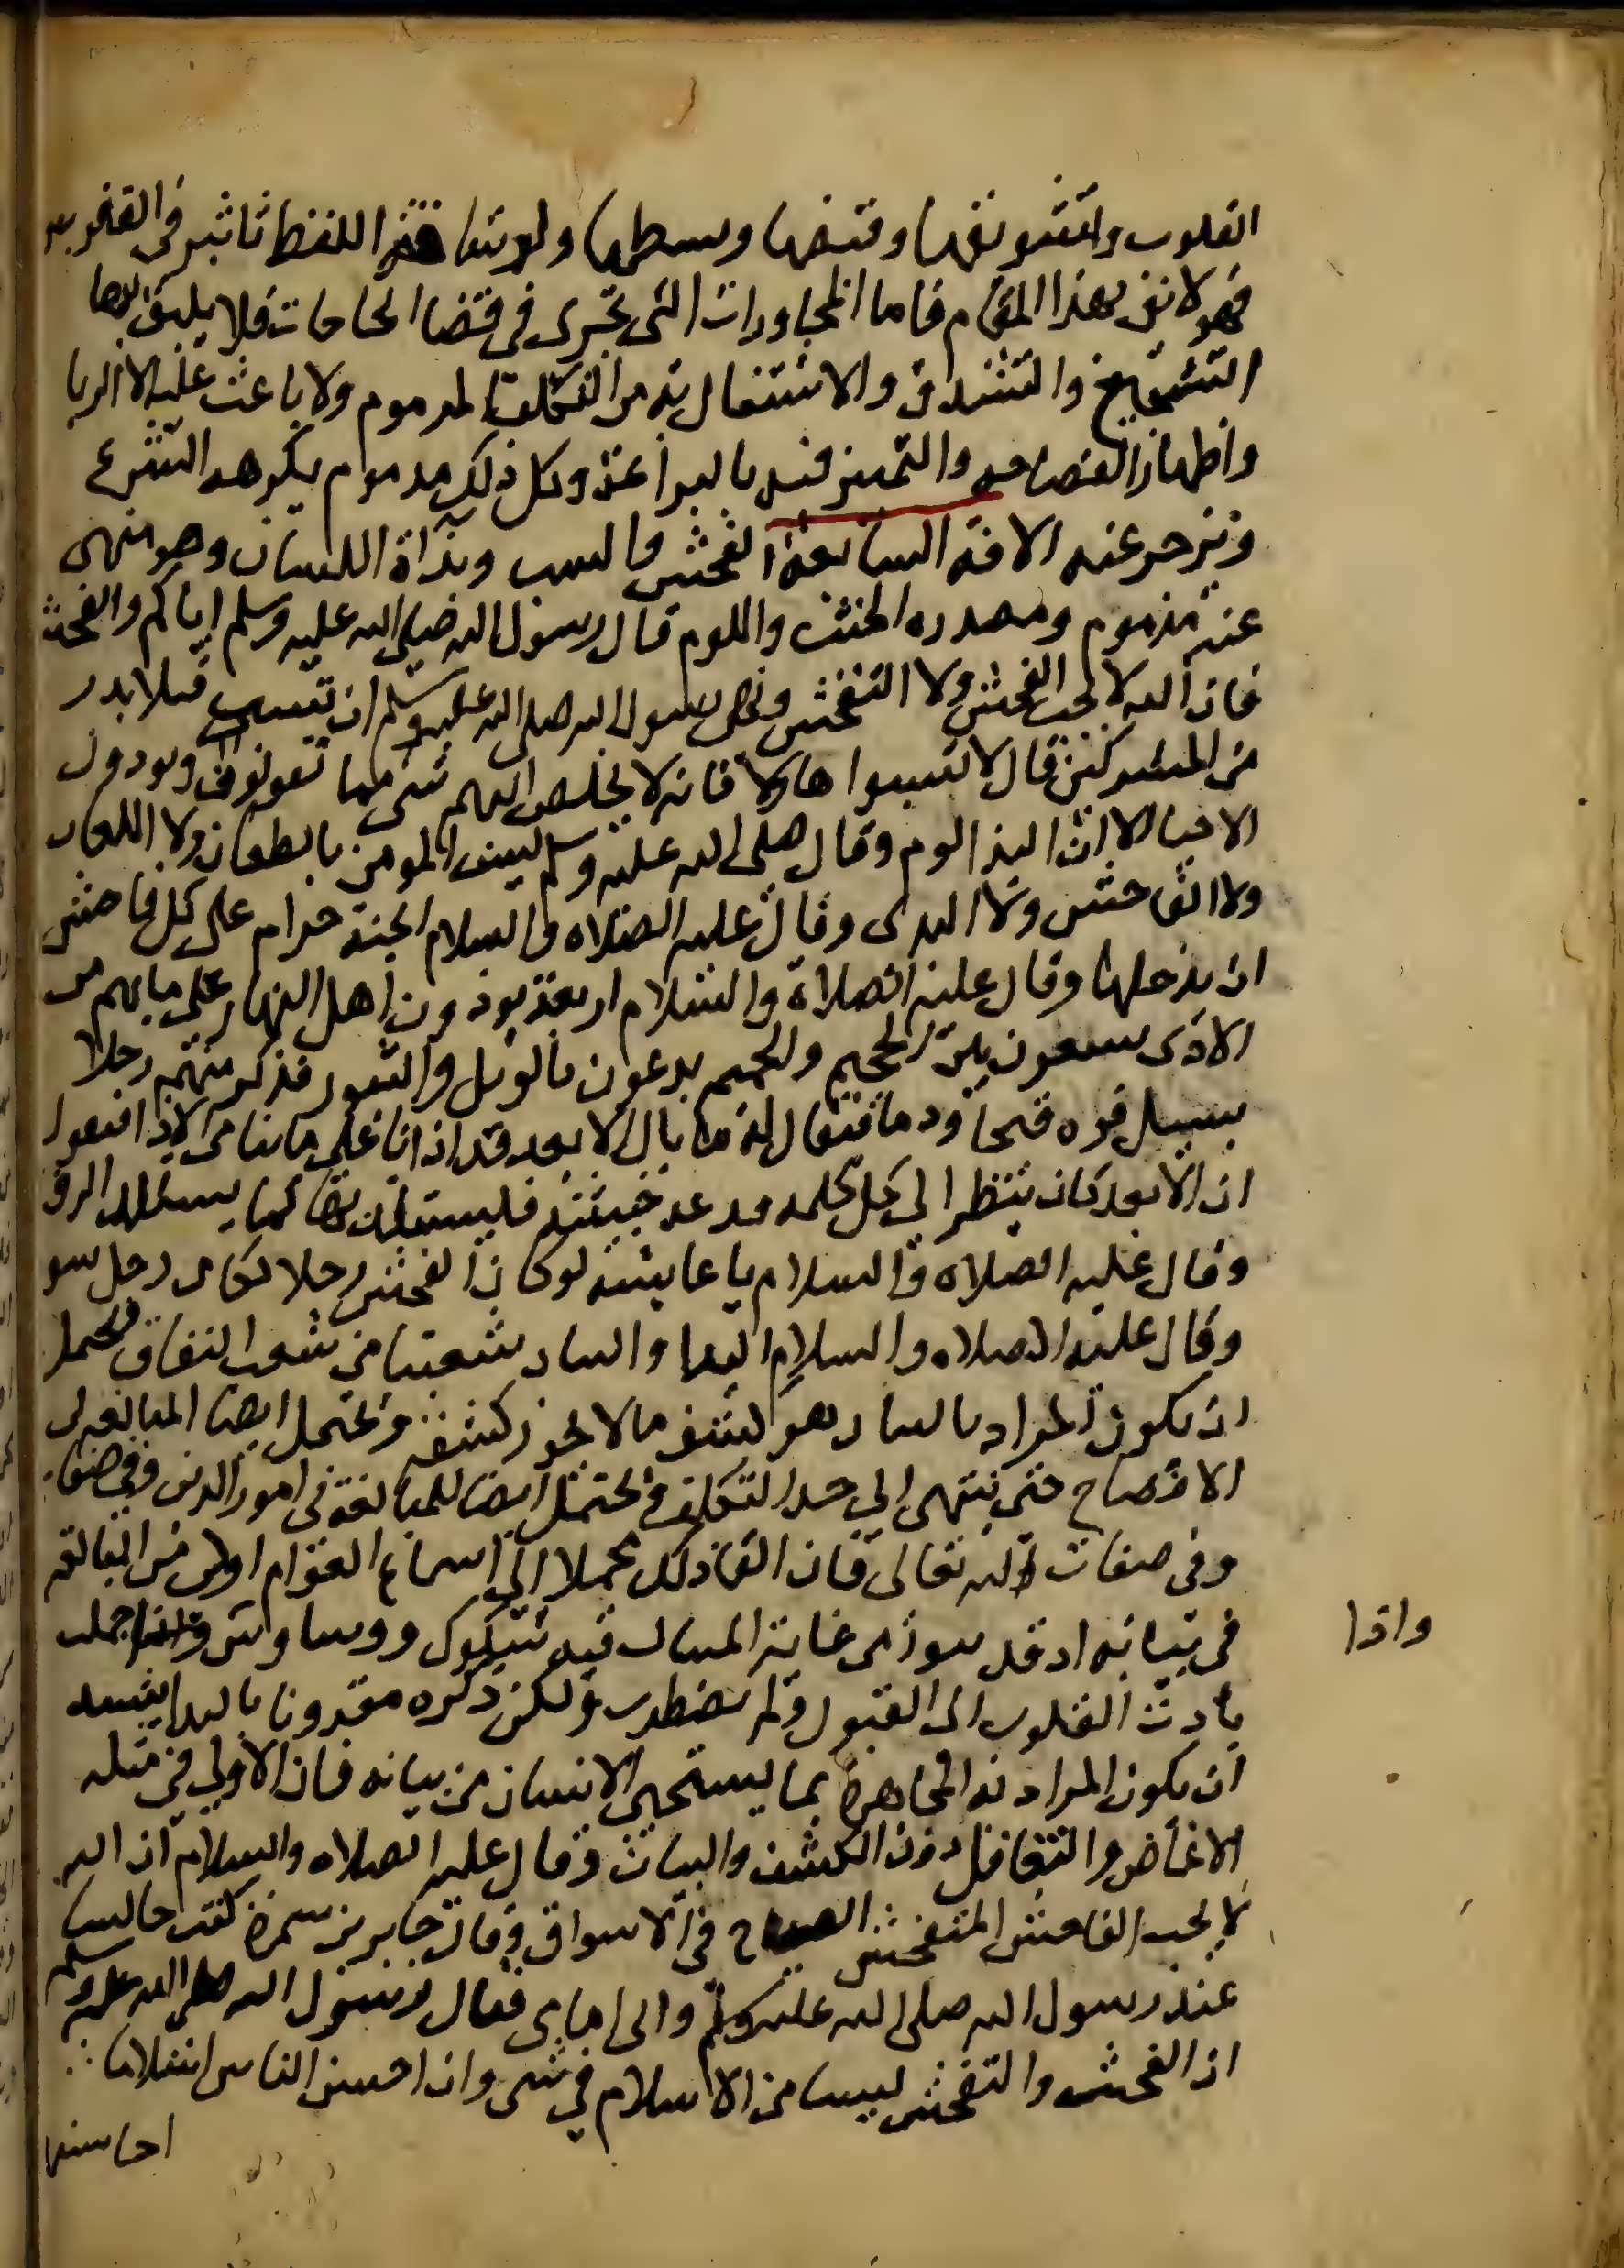 القلوب وتشويقها وقبضها وبسطها ولرشاقة اللفظ تاثير في القلوب
فهو لائق بهذا المقام فاما المحاورات التى تجرى فى قضا الحاجات فلا يليق بها
التسجيع والتشدق والاشتغال به من التكلف المذموم ولا باعث عليه الا الريا
واظهار الفصاحه والتميز فيه بالبراعة وكل ذلك مذموم يكرهه الشرع
ويزجر عنه الافة السابعة الفحش والسب وبذاة اللسان وهو منهى
عنه مذموم ومصدره الخبث واللوم قال رسول الله صلى الله عليه وسلم اياكم والفحش
فان الله لا يحب الفحش ولا التفحش ونهى رسول الله صلى الله عليه وسلم ان تسب قتلا بدر
من المشركين فقال لا تسبوا هاولا فانه لا يخلص اليهم شى مما تقولون وتودون
الاحيا الا ان البذا لوم وقال صلى الله عليه وسلم ليس المومن بالطعان ولا اللعان
ولا الفاحش ولا البذى وقال عليه الصلاه والسلام الجنة حرام على كل فاحش
ان يدخلها وقال عليه الصلاة والسلام اربعة يوذون اهل النار على ما بهم من
الاذى يسعون بين الحميم والجحيم يدعون بالويل والثبور فذكر منهم رجلا
يسيل فوه قيحا ودما فيقال له ما بال الابعد قد اذانا على ما بنا من الاذا فيقول
ان الابعد كان ينظر الى كل كلمه قدعه خبيثة فليستلذ بها كما يستلذ الرفث
وقال عليه الصلاه والسلام يا عايشه لو كان الفحش رجلا لكان رجل سو
وقال عليه الصلاه والسلام البذا والبيان شعبتا من شعب النفاق فيحتمل
ان يكون المراد بالبيان هو كشف ما لا يجوز كشفه ويحتمل ايضا المبالغه فى
الافصاح حتى ينتهى الى حد التكلف ويحتمل ايضا للمبالغة فى امور الدين وفى صفا
وفى صفات الله تعالى فان القا ذلك مجملا الى اسماع العوام اولى من المبالغه
فى بيانه اذ قد يثور من غاية البيان فيه شكوك ووساوس واذا اجملت
واذا
بادرت القلوب الى القبول ولم تضطرب ولكن ذكره مقرونا بالبذا يشبه
ان يكون المراد به المجاهرة بما يستحيي الانسان من بيانه فان الاولى فى مثله
الاغماض والتغافل دون الكشف والبيان وقال عليه الصلاه والسلام ان الله
لا يحب الفاحش المتفحش الصياح فى الاسواق وقال جابر بن سمرة كنت جالسا
عند رسول الله صلى الله عليه وسلم وابى امامى فقال رسول الله صلى الله عليه وسلم
ان الفحش والتفحش ليسا من الاسلام في شى وان احسن الناس اسلاما
احاسنهم